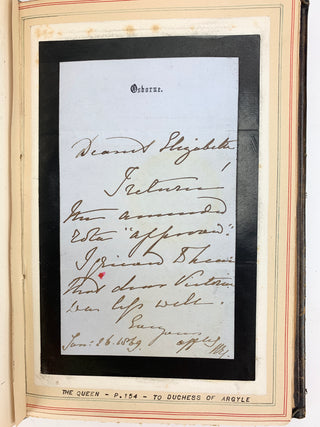 Osborne.
Dearest Elizabeth
I return
the amended
rota "approved".
I grieved to hear
that dear Victoria
was less well.
Ever yours
Jan: 26. 1869. affly
THE QUEEN - P.154 - TO DUCHESS OF ARGYLE